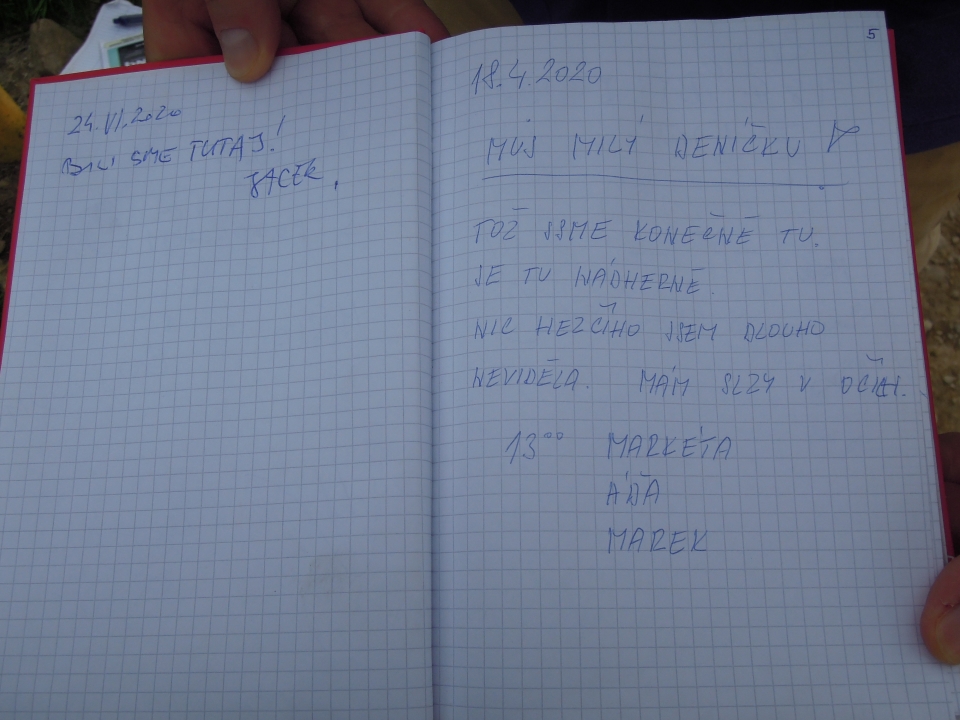 24.VI.2020
BYLI SME TUTAJ!
JACEK.
5
18.4.2020
MŮJ MILÝ DENÍČKU
TOŽ JSME KONEČNĚ TU.
JE TU NÁDHERNĚ.
NIC HEZČÍHO JSEM DLOUHO
NEVIDĚLA. MÁM SLZY V OČÍCH.
13⁰⁰ MARKÉTA
ÁĎA
MAREK